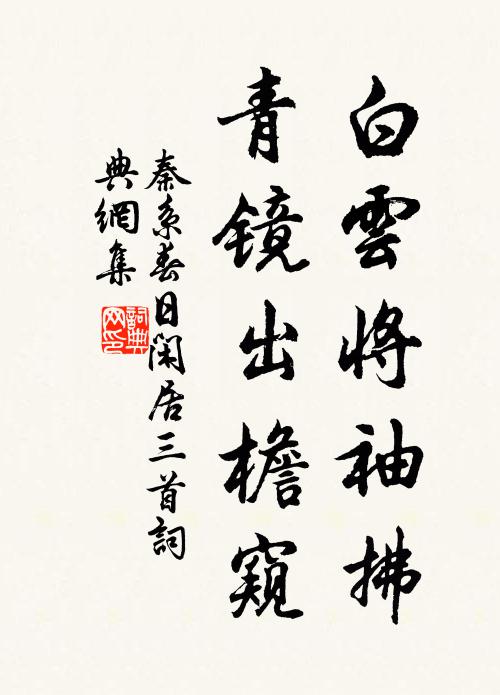 白雲將袖拂
青镜出檐窺
秦系春日閑居三首詞
典網集
詞典
网印